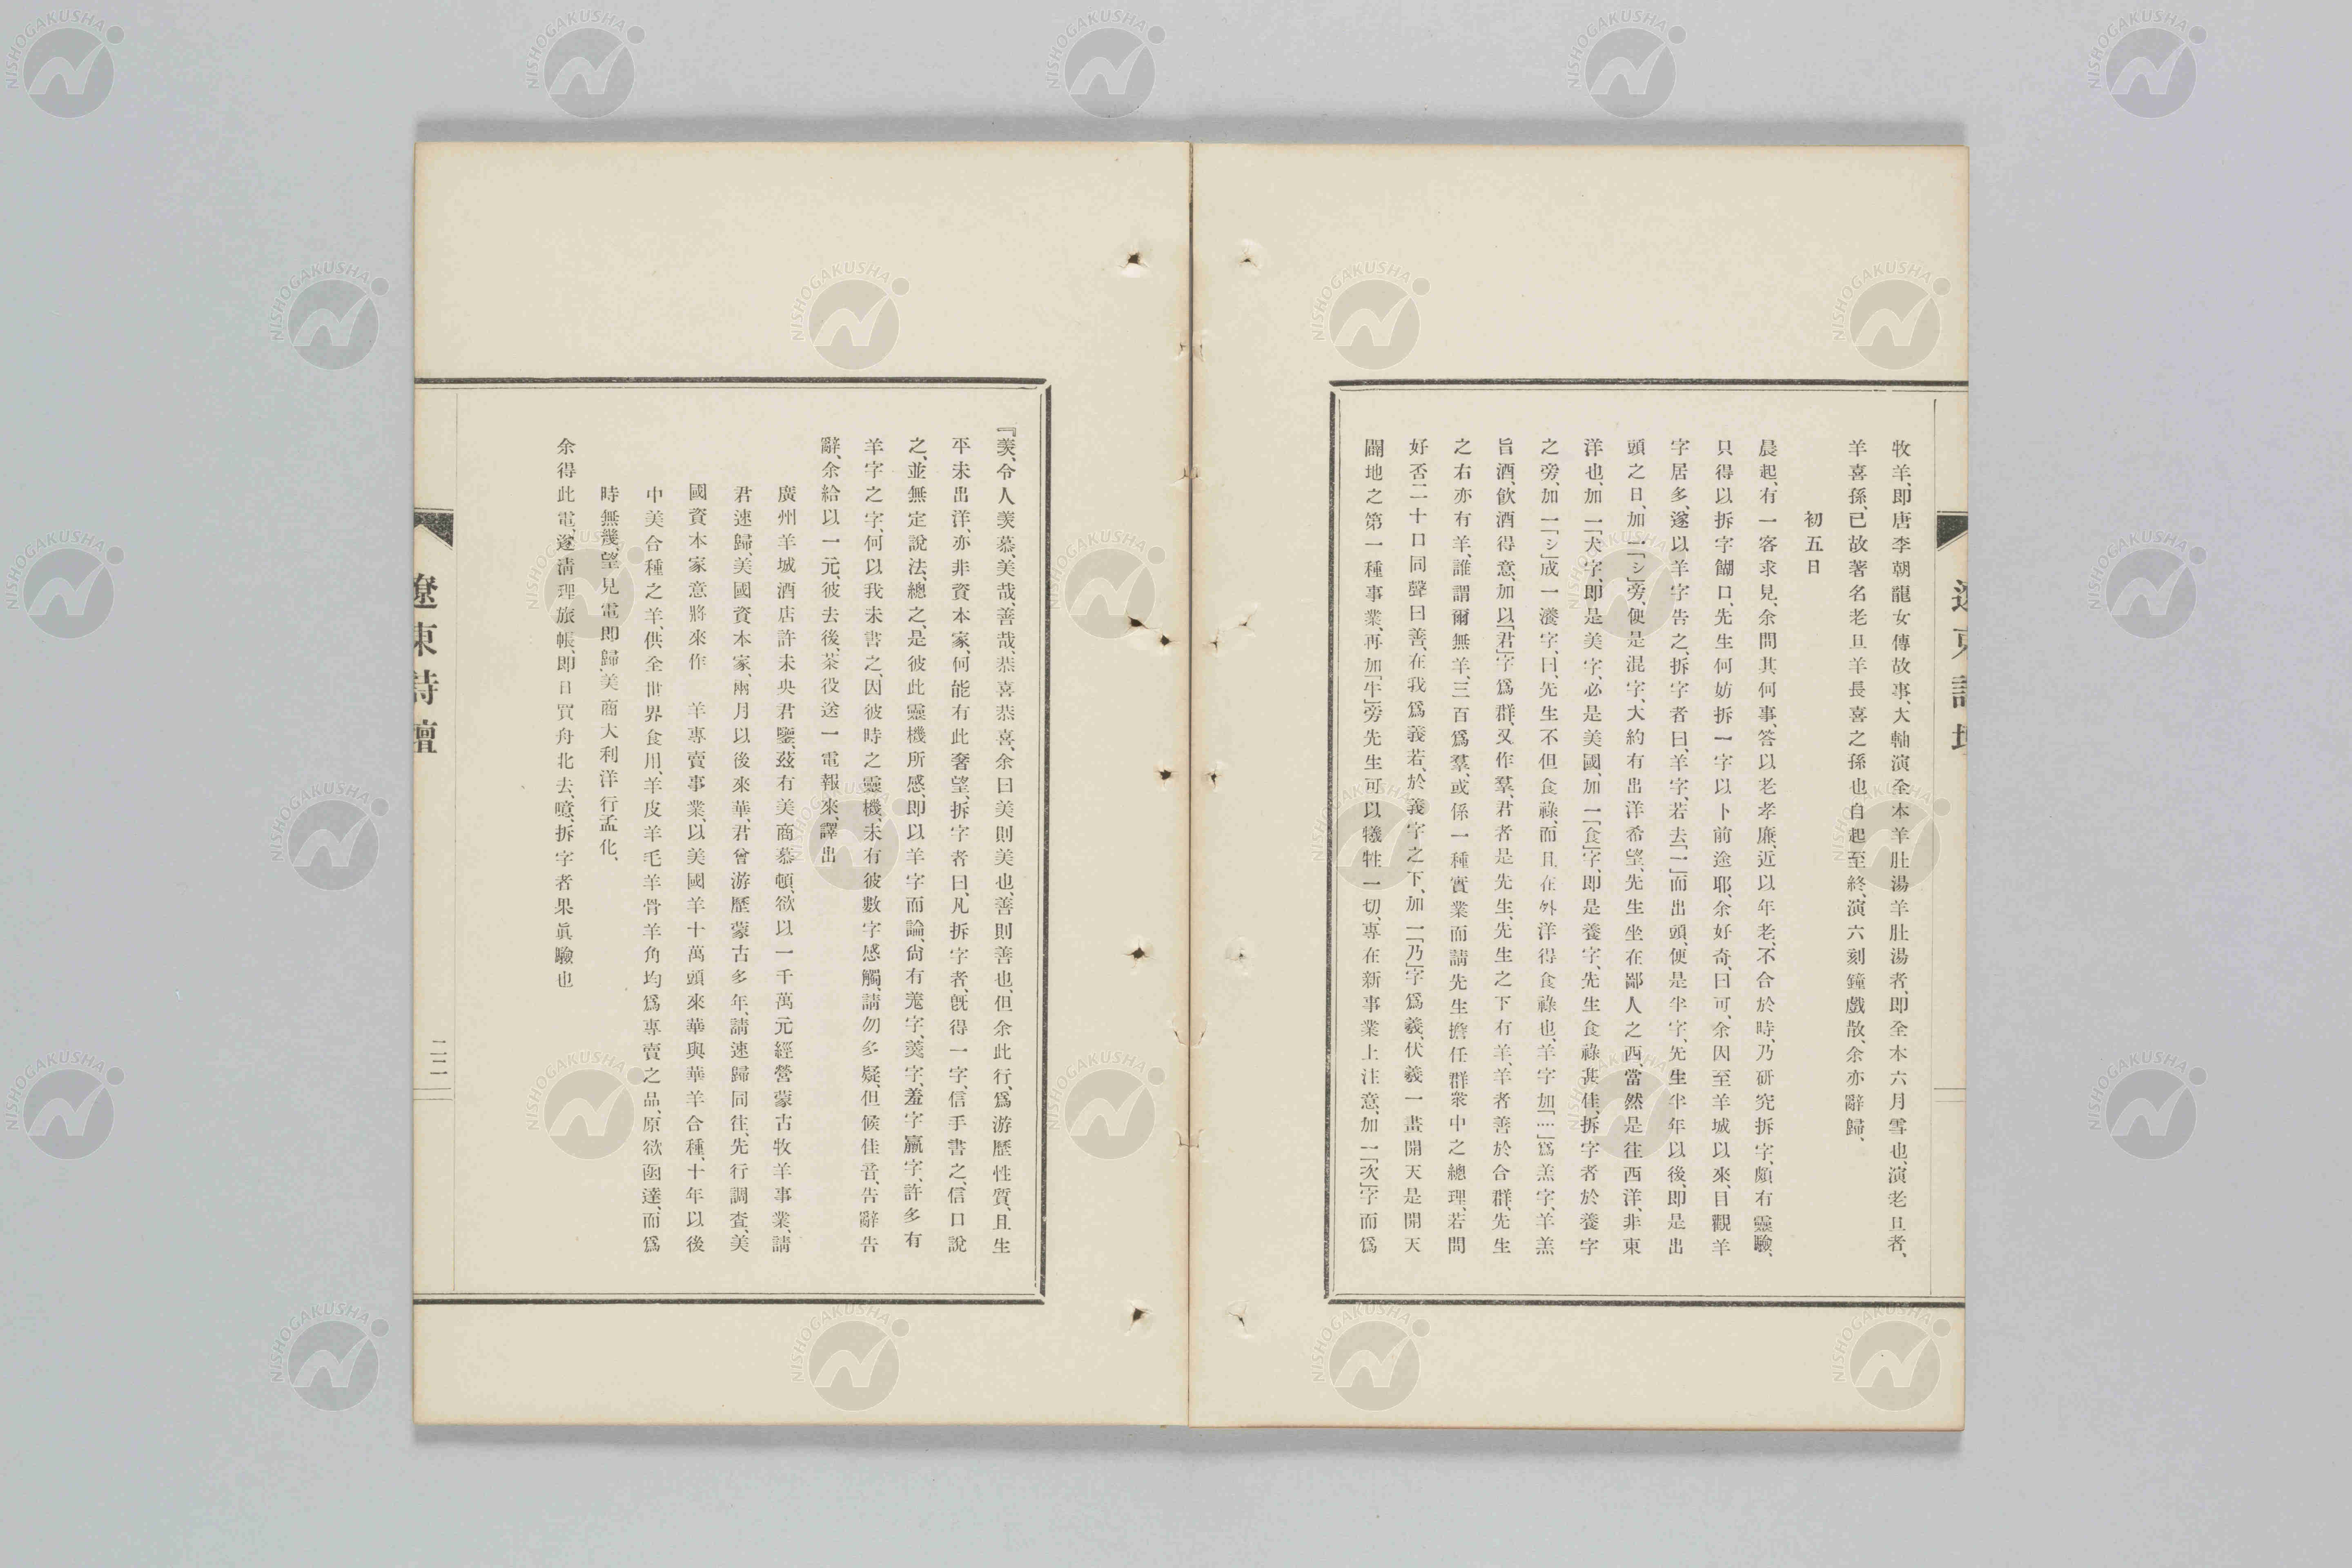 牧羊、即唐李朝龍女傳故事、大軸演全本羊肚湯羊肚湯者、即全本六月雪也、演老旦者、
羊喜孫、已故著名老旦羊長喜之孫也自起至終、演六刻鐘戲散、余亦辭歸、
初五日
晨起、有一客求見、余問其何事、答以老孝廉、近以年老、不合於時、乃研究拆字、頗有靈驗、
只得以拆字餬口、先生何妨拆一字以卜前途耶、余好奇、曰可、余因至羊城以來、日觀羊
字居多、遂以羊字告之、拆字者曰、羊字、若去「一」而出頭、便是半字、先生半年以後、即是出
頭之日、加一「シ」旁、便是混字、大約有出洋希望、先生坐在鄙人之西、當然是往西洋、非東
洋也、加一「大」字、即是美字、必是美國、加一「食」字、即是養字、先生食祿甚佳、拆字者於養字
之旁、加一「シ」成一瀁字、曰、先生不但食祿、而且在外洋得食祿也、羊字加「灬」爲羔字、羊羔
旨酒、飲酒得意、加以「君」字爲群、又作羣、君者是先生、先生之下有羊、羊者善於合群、先生
之右亦有羊、誰謂爾無羊、三百爲羣、或係一種實業而請先生擔任群衆中之總理、若問
好否、二十口同聲曰善、在我爲義若、於義字之下、加一「乃」字爲羲、伏羲一畫開天是開天
闢地之第一種事業、再加「牛」旁先生可以犧牲一切、專在新事業上注意、加一「次」字而爲
『羨、令人羨慕、美哉、善哉、恭喜恭喜、余曰美則美也、善則善也、但余此行、爲游歷性質、且生
平未出洋、亦非資本家、何能有此奢望、拆字者曰、凡拆字者、旣得一字、信手書之、信口說
之、並無定說法、總之、是彼此靈機所感、即以羊字而論、尙有羗字、羹字、羞字、羸字、許多有
羊字之字、何以我未書之、因彼時之靈機、未有彼數字感觸、請勿多疑、但候佳音、告辭告
辭、余給以一元、彼去後、茶役送一電報來、譯出
廣州羊城酒店許未央君鑒、茲有美商慕頓、欲以一千萬元經營蒙古牧羊事業、請
君速歸、美國資本家、兩月以後來華、君曾游歷蒙古多年、請速歸同往、先行調查、美
國資本家意將來作　羊專賣事業、以美國羊十萬頭來華與華羊合種、十年以後
中美合種之羊、供全世界食用、羊皮羊毛羊骨羊角均爲專賣之品、原欲函達、而爲
時無幾、望見電即歸、美商大利洋行孟化、
余得此電、遂清理旅帳、即日買舟北去、噫、拆字者果眞驗也
遼東詩壇
二二